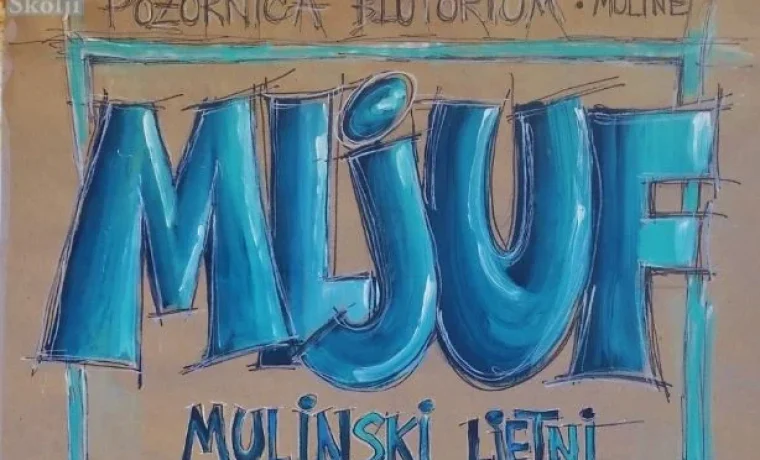 Skolji
POZORNICA BLUTORIUM • MULINE
MLjUF
MULINSKI LJETNI